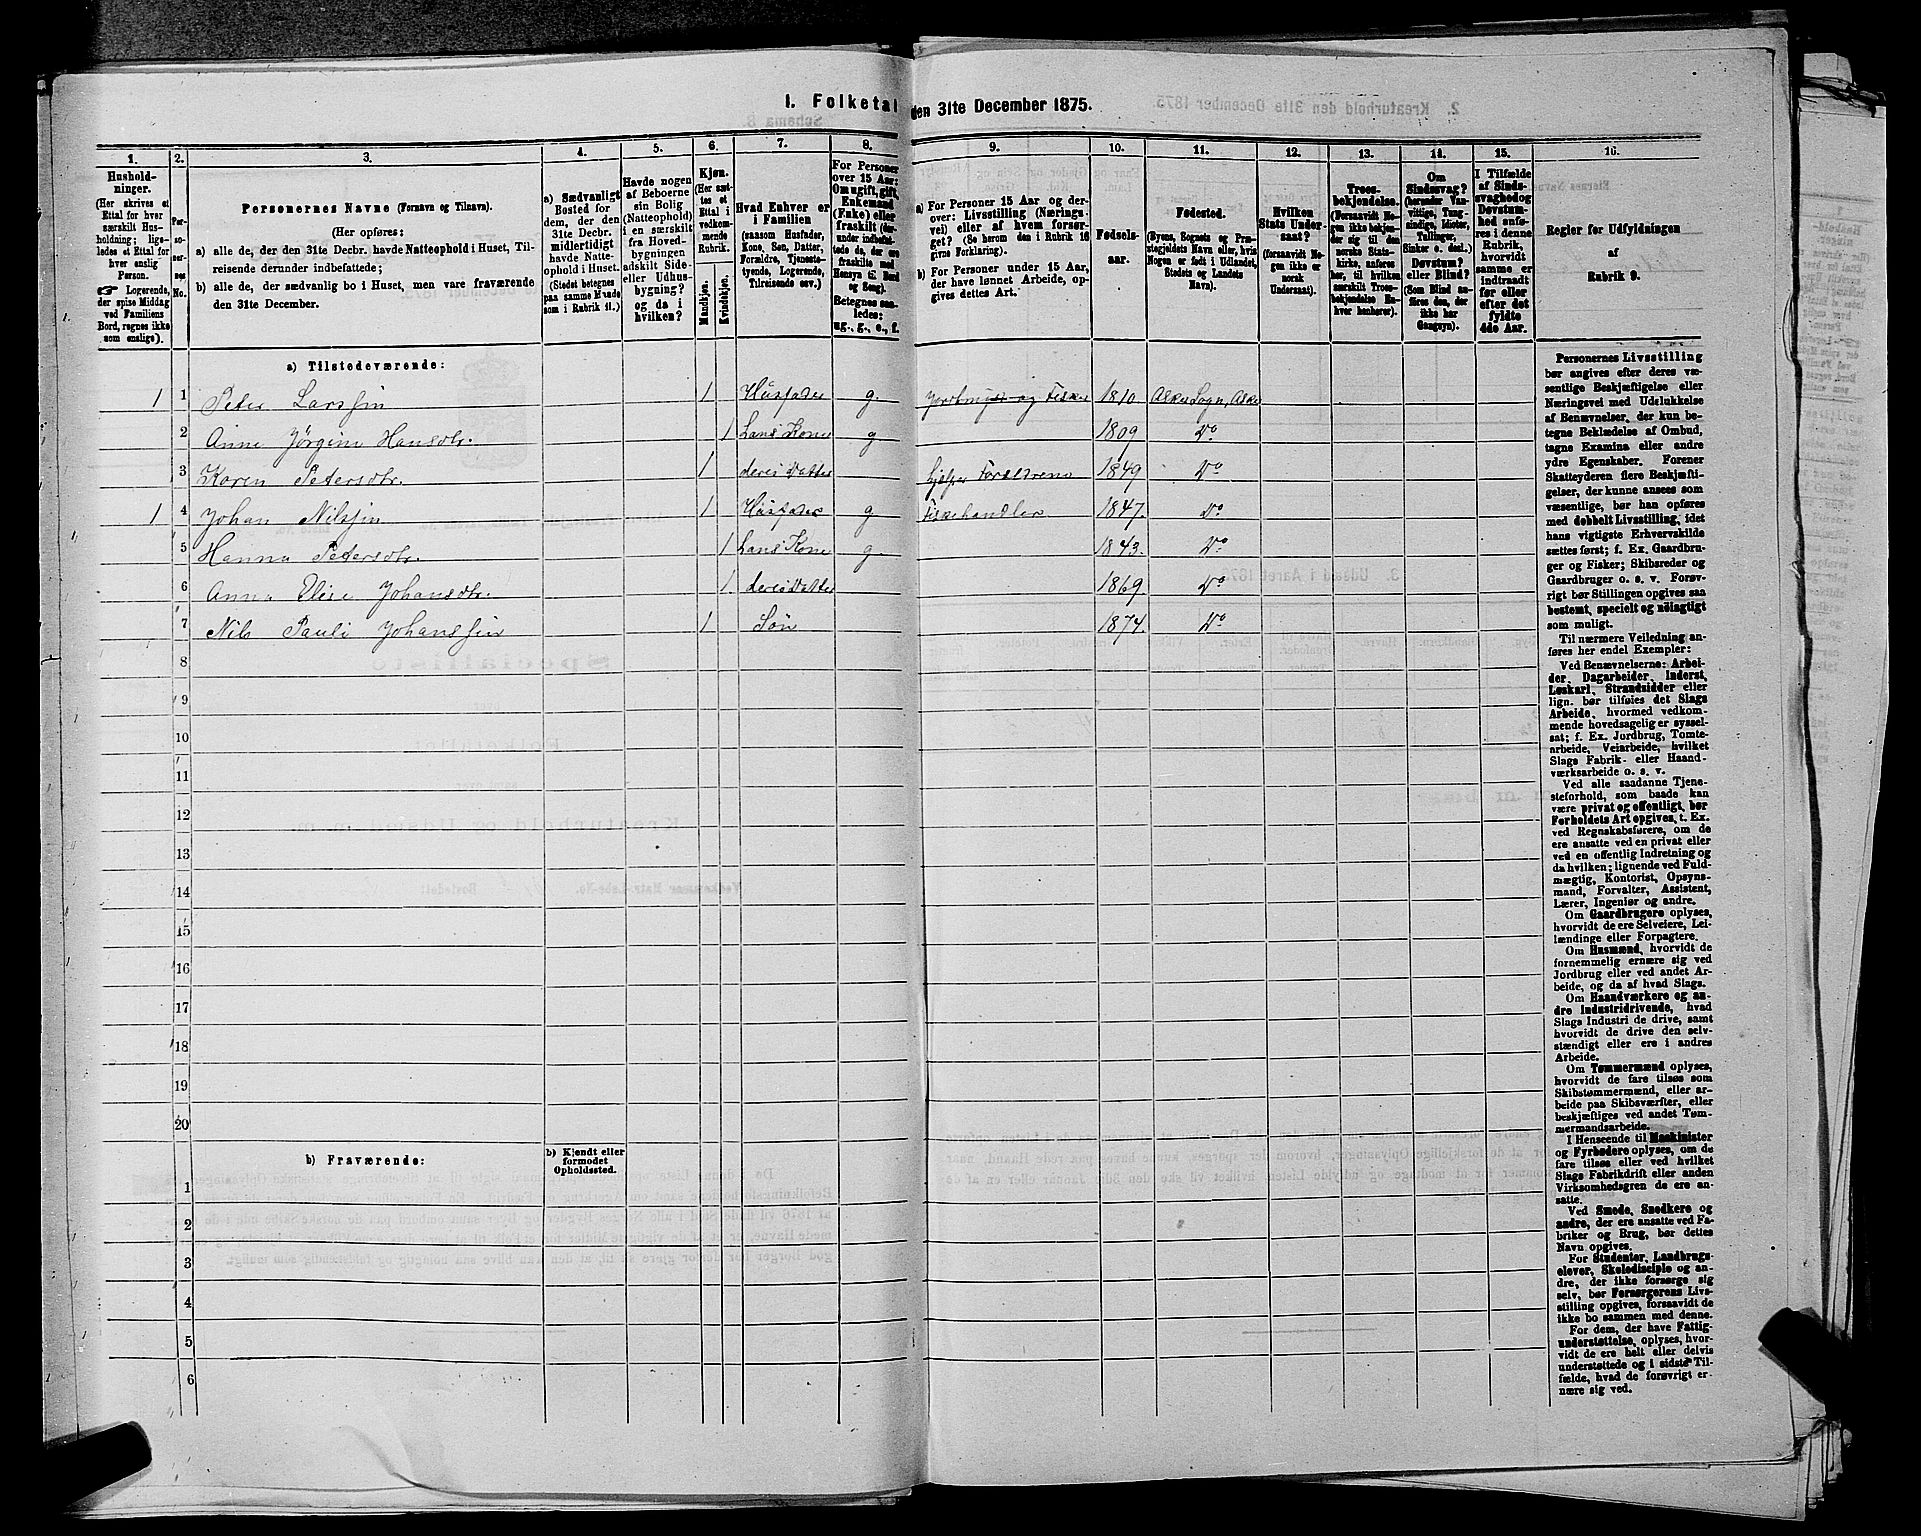 1. Folketal den 31te December 1875.
1. 2. 3. 4. 5. 6. 7. 8. 9. 10. 11. 12. 13. 14. 15. 16.
Hushold-
ninger.
(Her skrives et
Ettal for hver
særskilt Hus-
holdning; lige-
ledes et Ettal for
hver enslig
Person.
Logerende,
der spise Middag
ved Familiens
Bord, regnes ikke
som enslige).
Per-
so-
ner-
nes
No.
Personernes Navne (Fornavn og Tilnavn).
(Her opføres:
a) alle de, der den 31te Decbr. havde Natteophold i Huset, Til-
reisende derunder indbefattede;
b) alle de, der sædvanlig bo i Huset, men vare fraværende
den 31te December.
a) Sædvanligt
Bosted for
dem, der den
31te Decbr.
midlertidigt
havde Natte-
ophold i Huset.
(Stedet betegnes
paa samme Maade
som i Rubrik 11.)
Havde nogen
af Beboerne
sin Bolig
(Natteophold)
i en særskilt
fra Hoved-
bygningen
adskilt Side-
eller Udhus-
bygning?
og da i
hvilken?
Kjøn.
(Her sæt-
tes et
Ettal i
vedkom-
mende
Rubrik.
Mandkjøn.
Kvindekjøn.
Hvad Enhver er
i Familien
(saasom Husfader,
Kone, Søn, Datter,
Forældre, Tjeneste-
tyende, Logerende,
Tilreisende osv.)
For Personer
over 15 Aar:
Om ugift, gift,
Enkemand
(Enke) eller
fraskilt (der-
under indbefat-
tede de, der ere
fraskilte med
Hensyn til Bord
og Seng).
Betegnes saa-
ledes:
ug., g., e., f.
a) For Personer 15 Aar og der-
over: Livsstilling (Nærings-
vei) eller af hvem forsør-
get? (Se herom den i Rubrik 16
givne Forklaring).
b) For Personer under 15 Aar,
der have lønnet Arbeide, op-
gives dettes Art.
Fødsels-
aar.
Fødested.
(Byens, Sognets og Præ-
stegjeldets Navn eller, hvis
Nogen er født i Udlandet,
Stedets og Landets
Navn).
Hvilken
Stats Under-
saat?
(forsaavidt No-
gen ikke er
norsk
Undersaat).
Troes-
bekjendelse.
(Forsaavidt No-
gen ikke bekjen-
der sig til den
norske Stats-
kirke, anføres
her, til hvilken
særskilt Troes-
bekjendelse En-
hver henhører).
Om
Sindssvag?
(herunder Van-
vittige, Tung-
sindige, Idioter,
Tullinger,
Sinker o. desl.)
Døvstum?
eller Blind?
(Som Blind an-
føres den, der
ikke har
Gangsyn).
I Tilfælde
af Sinds-
svaghed og
Døvstum-
hed anfø-
res i denne
Rubrik,
hvorvidt
samme er
indtraadt
før eller
efter det
fyldte
4de Aar.
Regler for Udfyldningen
af
Rubrik 9.
a) Tilstedeværende:
1 1 Peter Larssen 1 Husfader g Jordbrug og Fisker 1810. Alsten Sogn, Alsten
2 Anne Jørgine Hansdtr. 1 hans Kone g 1809 Do
3 Karen Petersdtr. 1 deres Datter hjelper Forældrene 1849 Do
1 4 Johan Nilssen 1 Husfader g Fiskehandler 1847. Do
5 Hanna Petersdtr. 1 hans Kone g 1843. Do
6 Anna Elise Johansdtr. 1 deres Datter 1869. Do
7 Nils Pauli Johanssen 1 Søn 1874. Do
8
9
10
11
12
13
14
15
16
17
18
19
20
b) Fraværende: b) Kjendt eller
formodet
Opholdssted.
1
2
3
4
5
6
Personernes Livsstilling
bør angives efter deres væ-
sentlige Beskjæftigelse eller
Næringsvei med Udelukkelse
af Benævnelser, der kun be-
tegne Beklædelse af Ombud,
tagne Examina eller andre
ydre Egenskaber. Forener
Skatteyderen flere Beskjæfti-
gelser, der kunne ansees som
væsentlige, bør han opføres
med dobbelt Livsstilling, idet
hans vigtigste Erhvervskilde
sættes først; f. Ex. Gaardbru-
ger og Fisker; Skibsreder og
Gaardbruger o. s. v. Forøv-
rigt bør Stillingen opgives saa
bestemt, specielt og nøiagtigt
som muligt.
Til nærmere Veiledning an-
føres her endel Exempler:
Ved Benævnelserne: Arbei-
der, Dagarbeider, Inderst,
Løskarl, Strandsidder eller
lign. bør tilføies det Slags
Arbeide, hvormed vedkom-
mende hovedsagelig er syssel-
sat; f. Ex. Jordbrug, Tomte-
arbeide, Veiarbeide, hvilket
Slags Fabrik- eller Haand-
værksarbeide o. s. v.
Ved alle saadanne Tjene-
steforhold, som baade kan
være privat og offentligt, bør
Forholdets Art opgives, t. Ex.
ved Regnskabsførere, om de
ere ansatte ved en privat eller
ved en offentlig Indretning og
da hvilken; lignende ved Fuld-
mægtig, Kontorist, Opsyns-
mand, Forvalter, Assistent,
Lærer, Ingeniør og andre.
Om Gaardbrugere oplyses,
hvorvidt de ere Selveiere, Lei-
lændinge eller Forpagtere.
Om Husmænd, hvorvidt de
fornemmelig ernære sig ved
Jordbrug eller ved andet Ar-
beide, og da af hvad Slags.
Om Haandværkere og an-
dre Industridrivende, hvad
Slags Industri de drive, samt
hvorvidt de drive den selv-
stændigt eller ere i andres
Arbeide.
Om Tømmermænd oplyses,
hvorvidt de fare tilsøs som
Skibstømmermænd, eller ar-
beide paa Skibsværfter, eller
beskjæftiges ved andet Tøm-
mermandsarbeide.
I Henseende til Maskinister
og Fyrbødere oplyses, om de
fare tilsøs eller ved hvilket
Slags Fabrikdrift eller anden
Virksomhedsgren de ere an-
satte.
Ved Smede, Snedkere og
andre, der ere ansatte ved Fa-
briker og Brug, bør dettes
Navn opgives.
For Studenter, Landbrugs-
elever, Skoledisciple og an-
dre, der ikke forsørge sig
selv, bør Forsørgerens Livs-
stilling opgives, forsaavidt de
ikke bo sammen med denne.
For dem, der have Fattig-
understøttelse, oplyses, hvor-
vidt de ere helt eller delvis
understøttede og i sidste Til-
fælde, hvad de forøvrigt er-
nære sig ved.